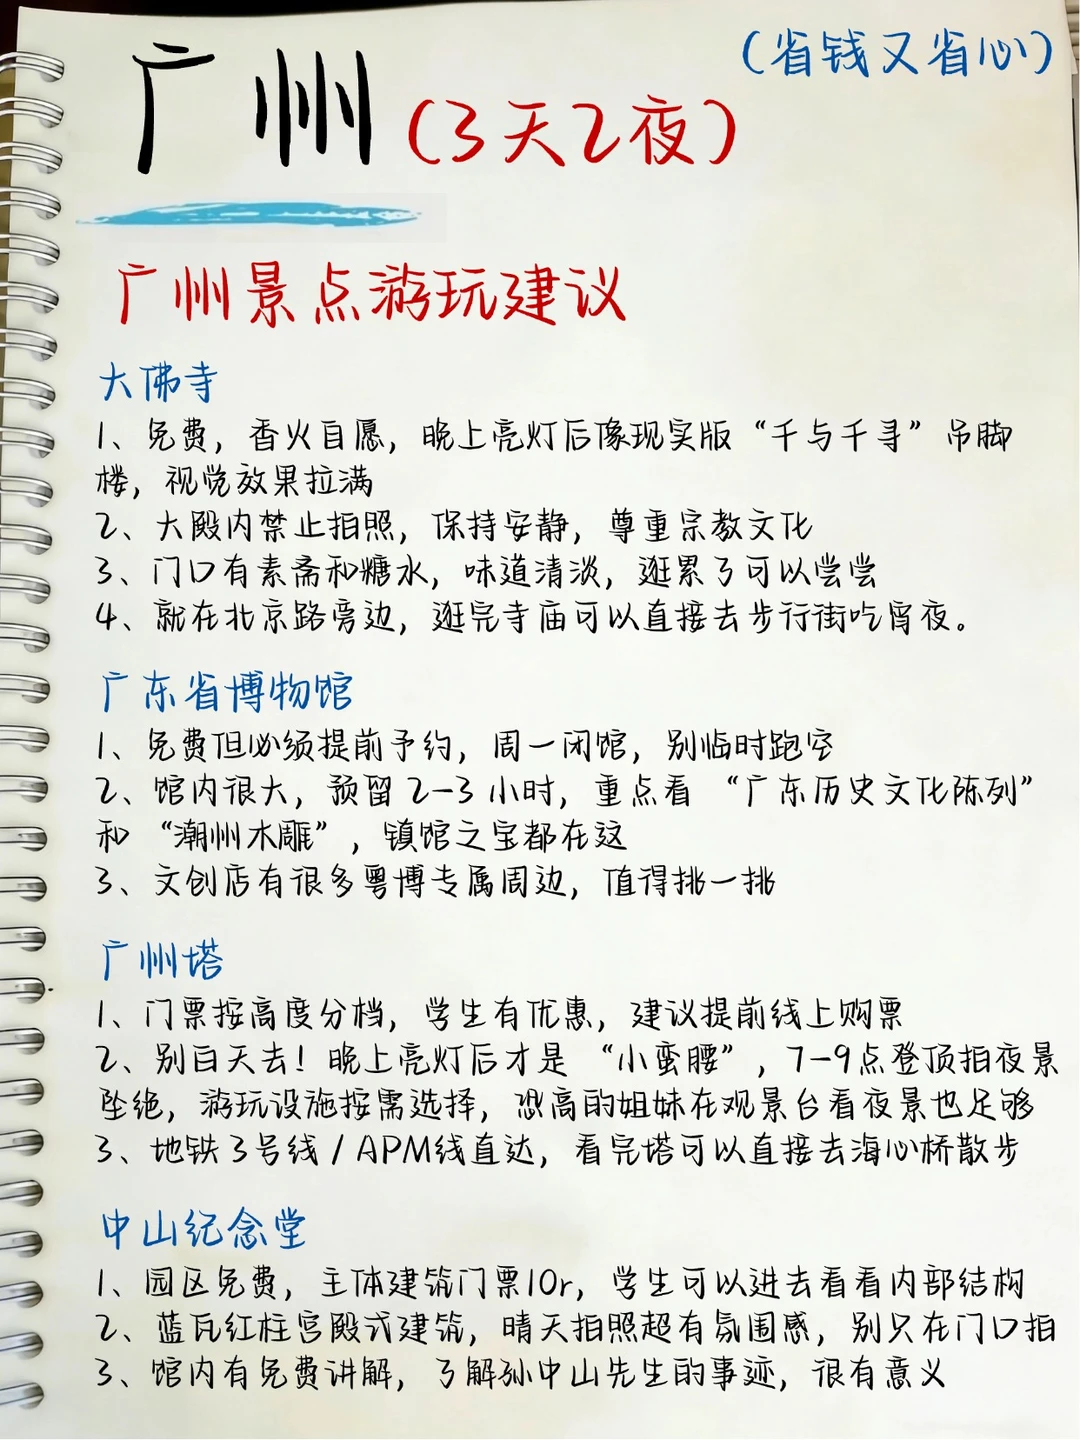 (省钱又省心)
广州(3天2夜)
广州景点游玩建议
大佛寺
1、免费，香火自愿，晚上亮灯后像现实版“千与千寻”吊脚
楼，视觉效果拉满
2、大殿内禁止拍照，保持安静，尊重宗教文化
3、门口有素斋和糖水，味道清淡，逛累了可以尝尝
4、就在北京路旁边，逛完寺庙可以直接去步行街吃宵夜。
广东省博物馆
1、免费但必须提前予约，周一闭馆，别临时跑空
2、馆内很大，预留2-3小时，重点看“广东历史文化陈列”
和“潮州木雕”，镇馆之宝都在这
3、文创店有很多粤博专属周边，值得挑一挑
广州塔
1、门票按高度分档，学生有优惠，建议提前线上购票
2、别白天去！晚上亮灯后才是“小蛮腰”，7-9点登顶拍夜景
坠绝，游玩设施按需选择，恐高的姐妹在观景台看夜景也足够
3、地铁3号线/APM线直达，看完塔可以直接去海心桥散步
中山纪念堂
1、园区免费，主体建筑门票10r，学生可以进去看看内部结构
2、蓝瓦红柱宫殿式建筑，晴天拍照超有氛围感，别只在门口拍
3、馆内有免费讲解，了解孙中山先生的事迹，很有意义